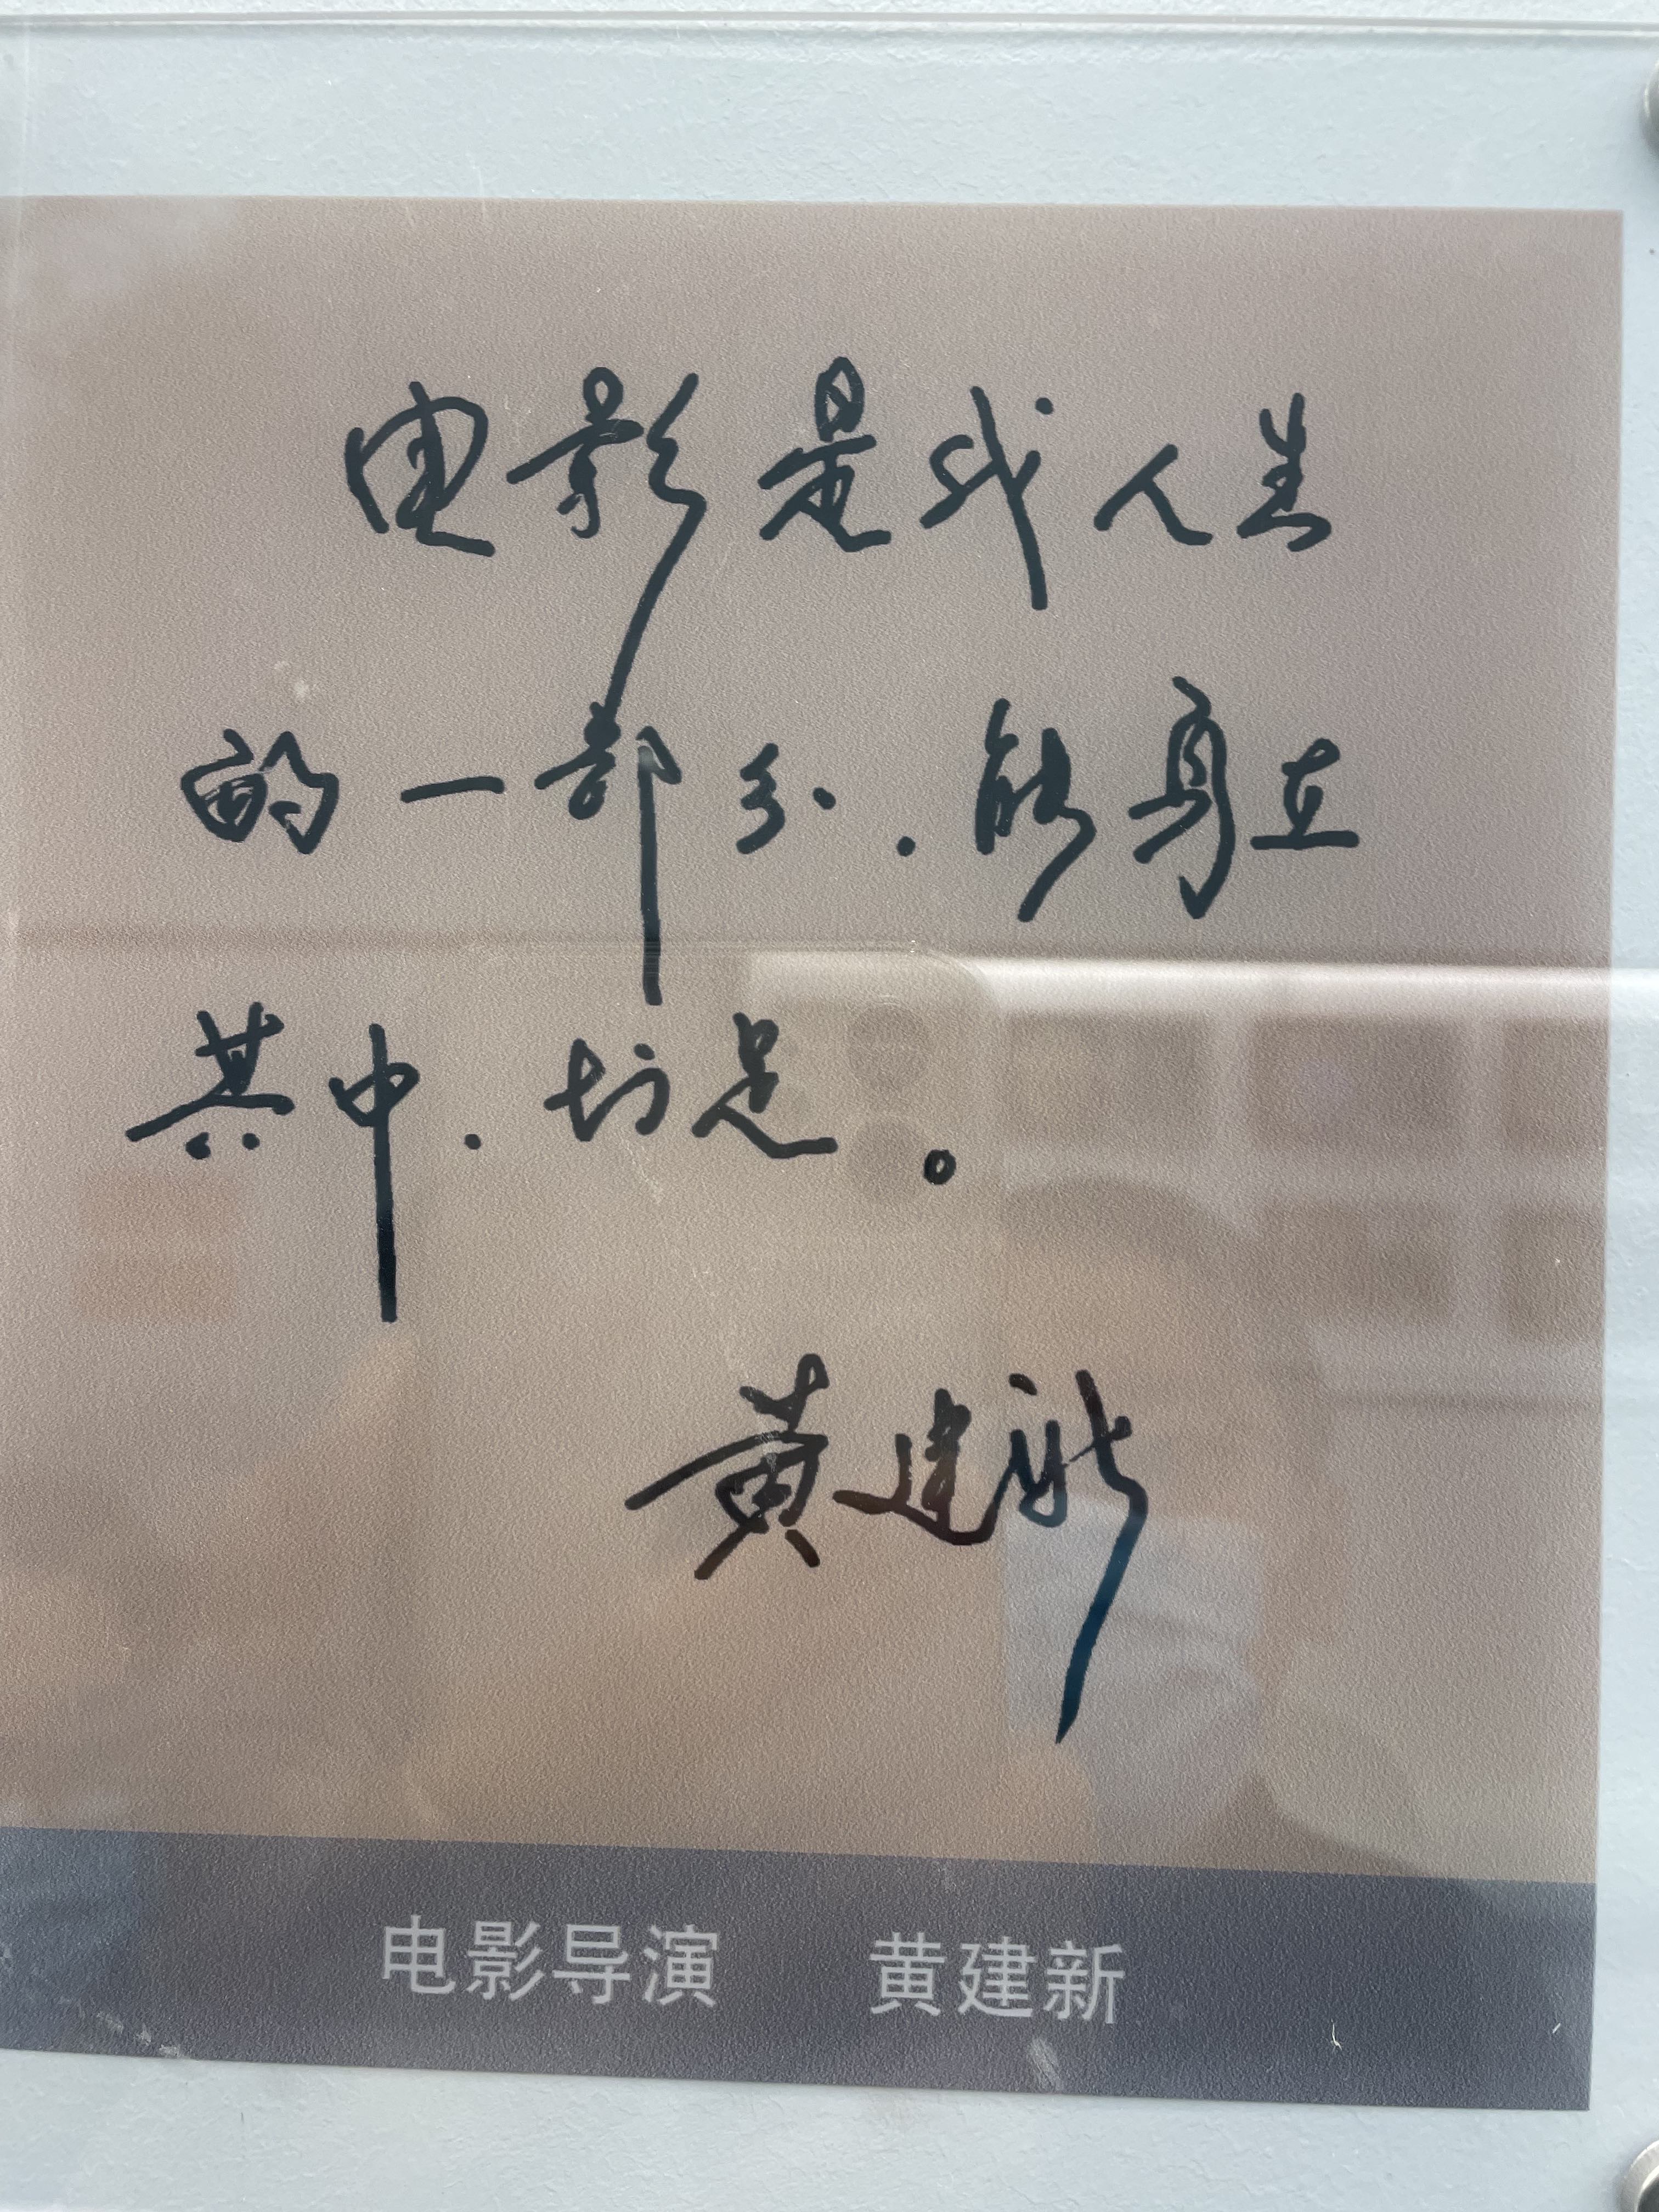 电影是我人生
的一部分，能身在
其中，知足。
黄建新
电影导演 黄建新